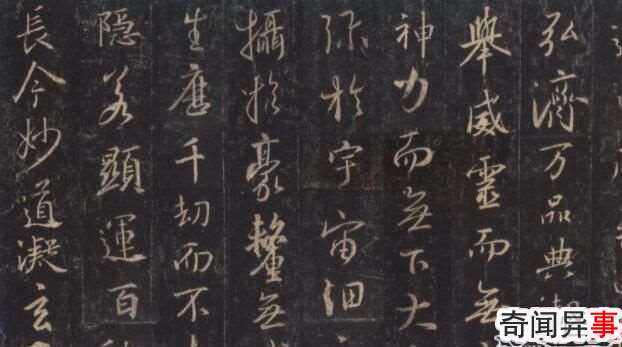 弘濟万品典
舉威靈而無
神力而無下大
弥於宇宙細
攝於豪釐無
生歷千劫而不
隱若顯運百
長今妙道凝玄
奇闻异事